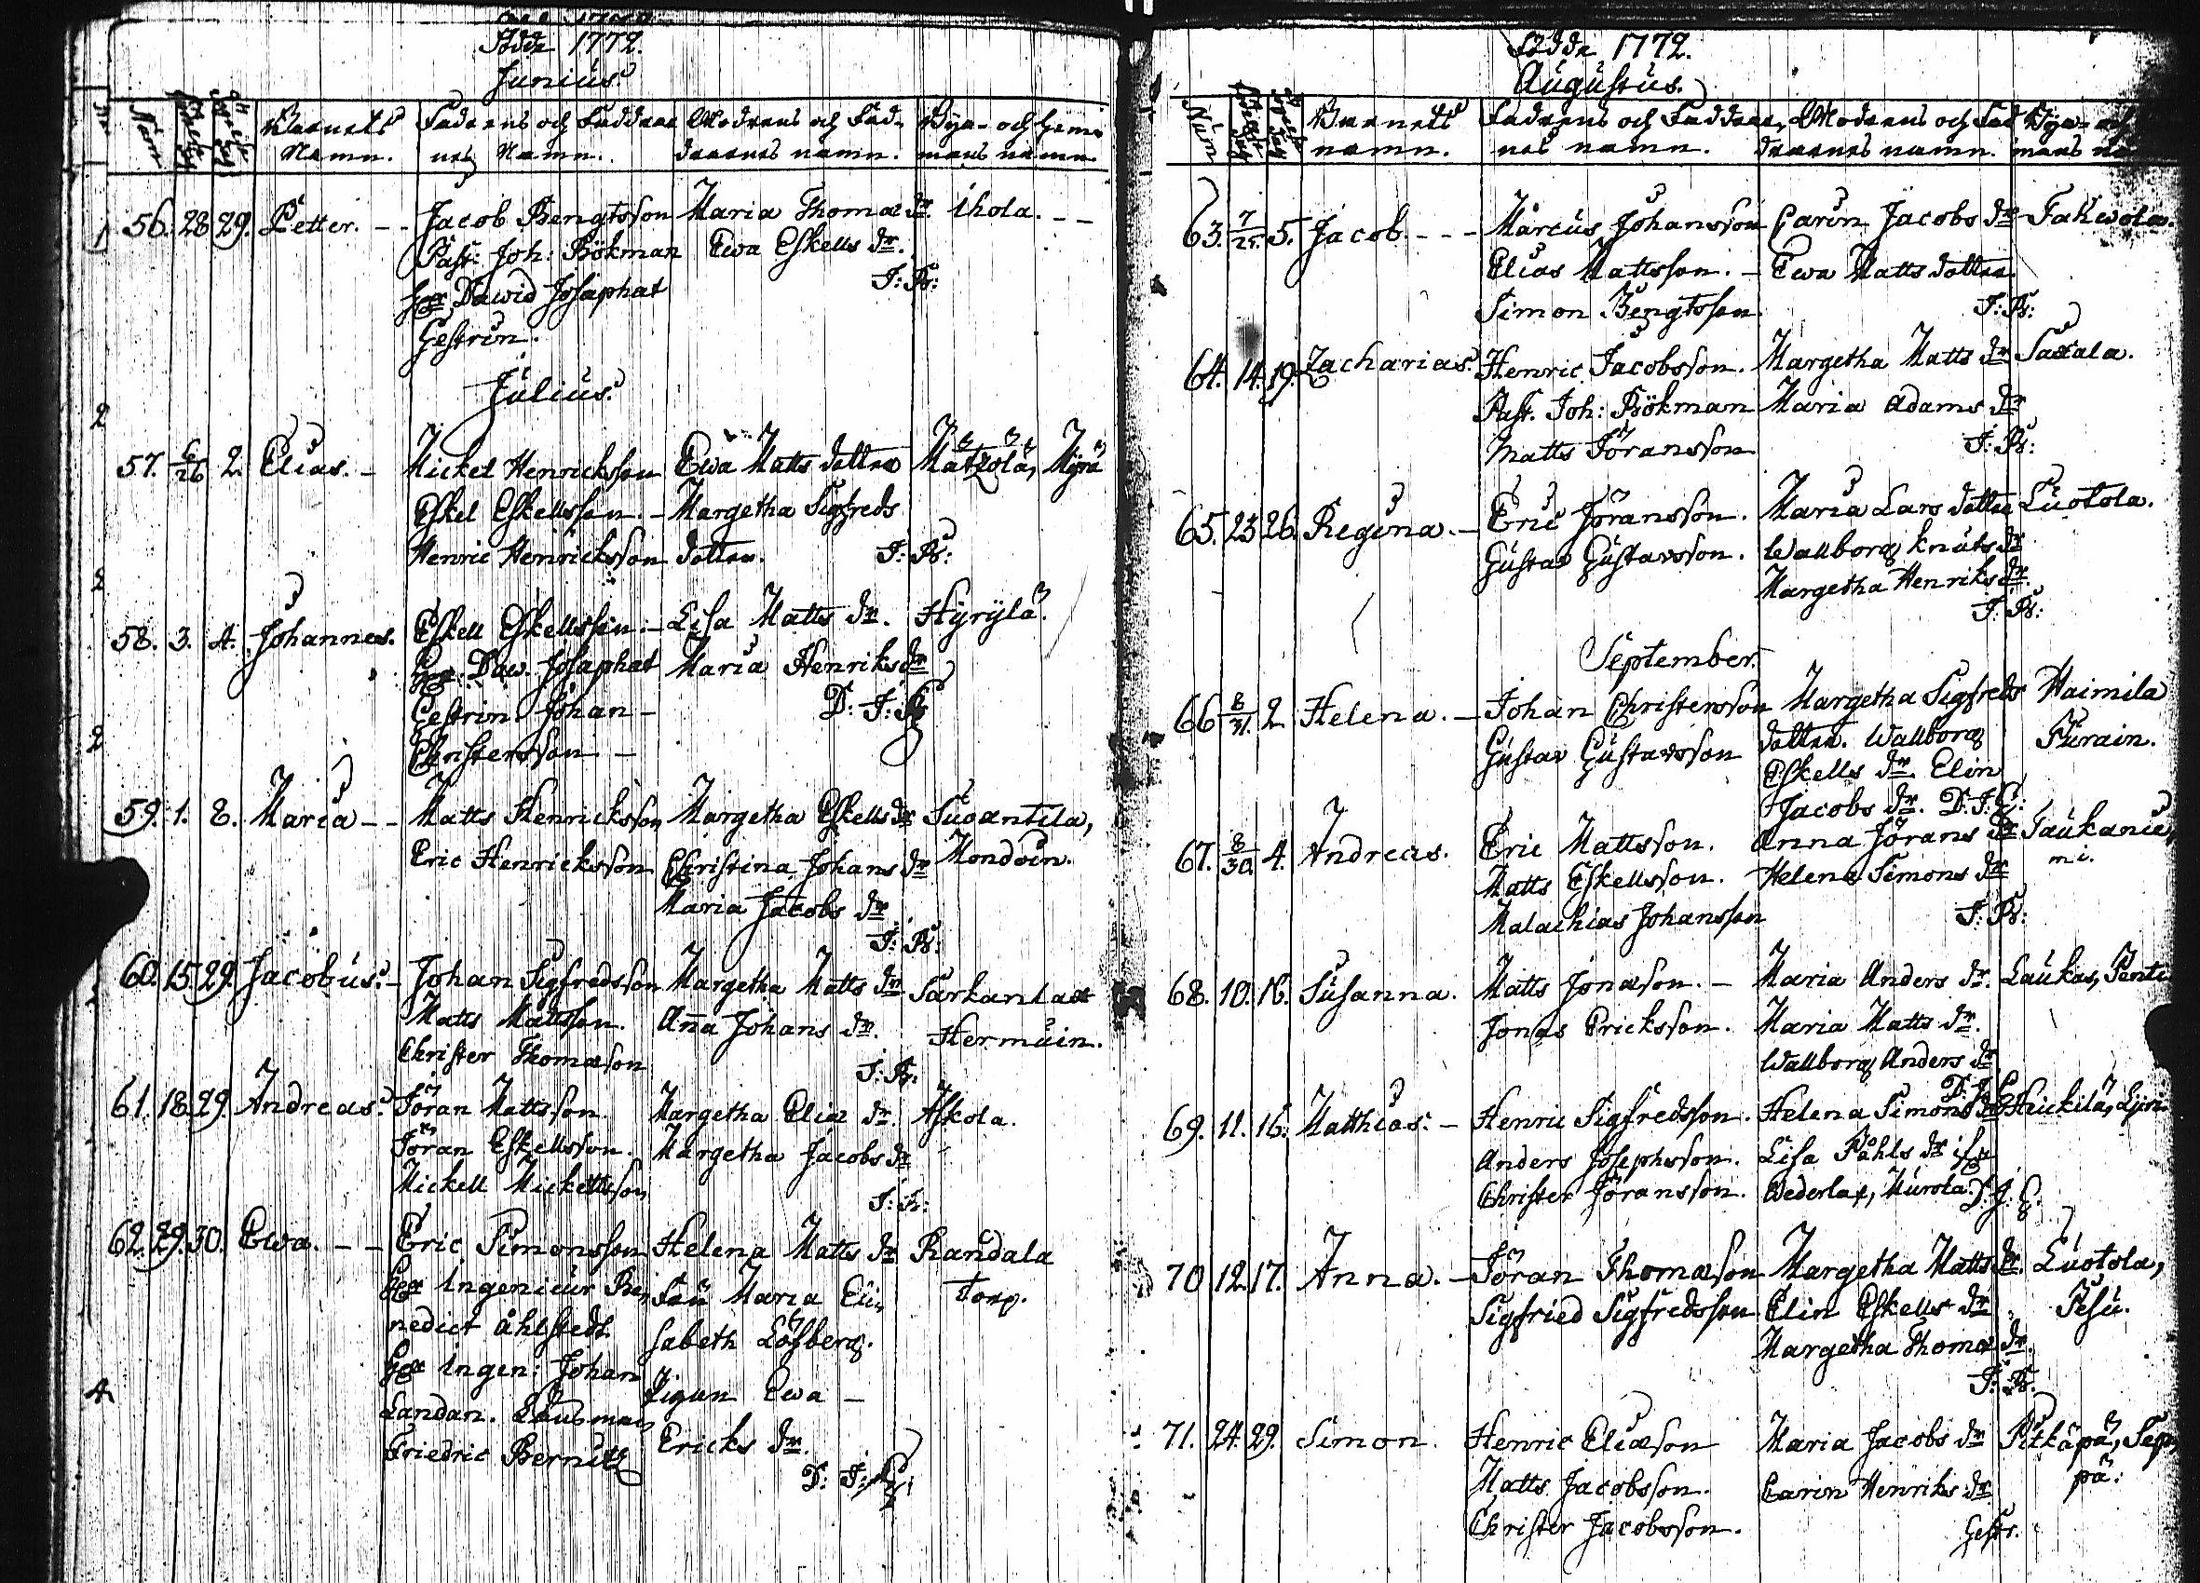 Födde 1772.
Junius.
Barnets Namn.
Fadrens och Faddrar nes Namn.
Modrens och Fad- drarnes namn.
Bya- och hem- mans namn
56. 28 29. Petter. - - Jacob Bengtsson Maria Thomæ dr. Ihola. - -
Past: Joh: Bökman Ewa Eskells dr.
Herr Dawid Josaphat J: B:
Gestrin.
Julius.
57. 6/26 2. Elias. - Mickel Henricksson Ewa Matts dotter Mätzölä, Myrä
Eskel Eskellsson. - Margetha Sigfreds
Henric Henricksson dotter. J: B:
58. 3. 4. Johannes. Eskell Eskellsson. - Lisa Matts dr. Hyrylä.
Herr Daw. Josaphat Maria Henriks dr
Gestrin. Johan - D: J: G
Christersson -
59. 1. 8. Maria - - Matts Henricksson Margetha Eskells dr Suoantila,
Eric Henricksson Christina Johans dr Mondoin.
Maria Jacobs dr
J: B:
60. 15. 29. Jacobus. - Johan Sigfredsson Margetha Matts dr Sarkanlax
Matts Mattsson. Anna Johans dr. Hermuin.
Christer Thomæson
J: B:
61. 18. 29. Andreas. Jöran Mattsson. Margetha Eliæ dr. Askola.
Jöran Eskellsson. Margetha Jacobs dr
Mickell Mickellsson
J: B:
62. 29. 30. Ewa. - - Eric Simonsson Helena Matts dr Randala
Herr Ingenieur Be- Fru Maria Eli- Torp.
nedict Åhlstedt. sabeth Löfberg.
Herr Ingen: Johan
Landan. Länsman Pigan Ewa -
Friedric Bernitz Ericks dr.
D: J: G:
Födde 1772.
Augustus.
Barnets namn.
Fadrens och Faddrar- nes namn.
Modrens och Fad drarnes namn.
63. 7/25. 5. Jacob. - - - Marcus Johansson Carin Jacobs dr
Elias Mattsson. - Ewa Matts dotter
Simon Bengtsson. J: B:
64. 14. 19. Zacharias. Henric Jacobsson. Margetha Matts dr Saxala.
Past. Joh: Bökman Maria Adams dr
Matts Jöransson J: B:
65. 23 26. Regina. - Eric Jöransson. Maria Lars dotter Luotola.
Gustav Gustavsson. Wallborg Knuts dr
Margetha Henriks dr.
J: B:
September.
66 8/31. 2. Helena. - Johan Christersson Margetha Sigfreds Haimila
Gustav Gustavsson dotter. Wallborg Turain.
Eskells dr. Elin
Jacobs dr. D. J. G:
67. 8/30. 4. Andreas. Eric Mattsson. Anna Jörans dr Taukanie,
Matts Eskellsson. Helena Simons dr mi.
Malachias Johansson J: B:
68. 10. 16. Susanna. Matts Jonæson. - Maria Anders dr. Laukas,
Jonas Ericksson. Maria Matts dr.
Wallborg Anders dr
D: J: G
69. 11. 16. Matthias. - Henric Sigfredsson. Helena Simons dr Heickilä,
Anders Josephsson. Lisa Påhls dr ifrå
Christer Jöransson. Wederlax, Murola. D. J. G.
70 12. 17. Anna. - Jöran Thomæson Margetha Matts dr. Luotola,
Sigfried Sigfredsson Elin Eskells dr Pesu.
Margetha Thomæ dr.
J: B.
71. 24. 29. Simon. Henric Eliæson Maria Jacobs dr Pitkäpä, Sep
Matts Jacobsson. Carin Henriks dr pä.
Christer Jacobsson. Gestr.